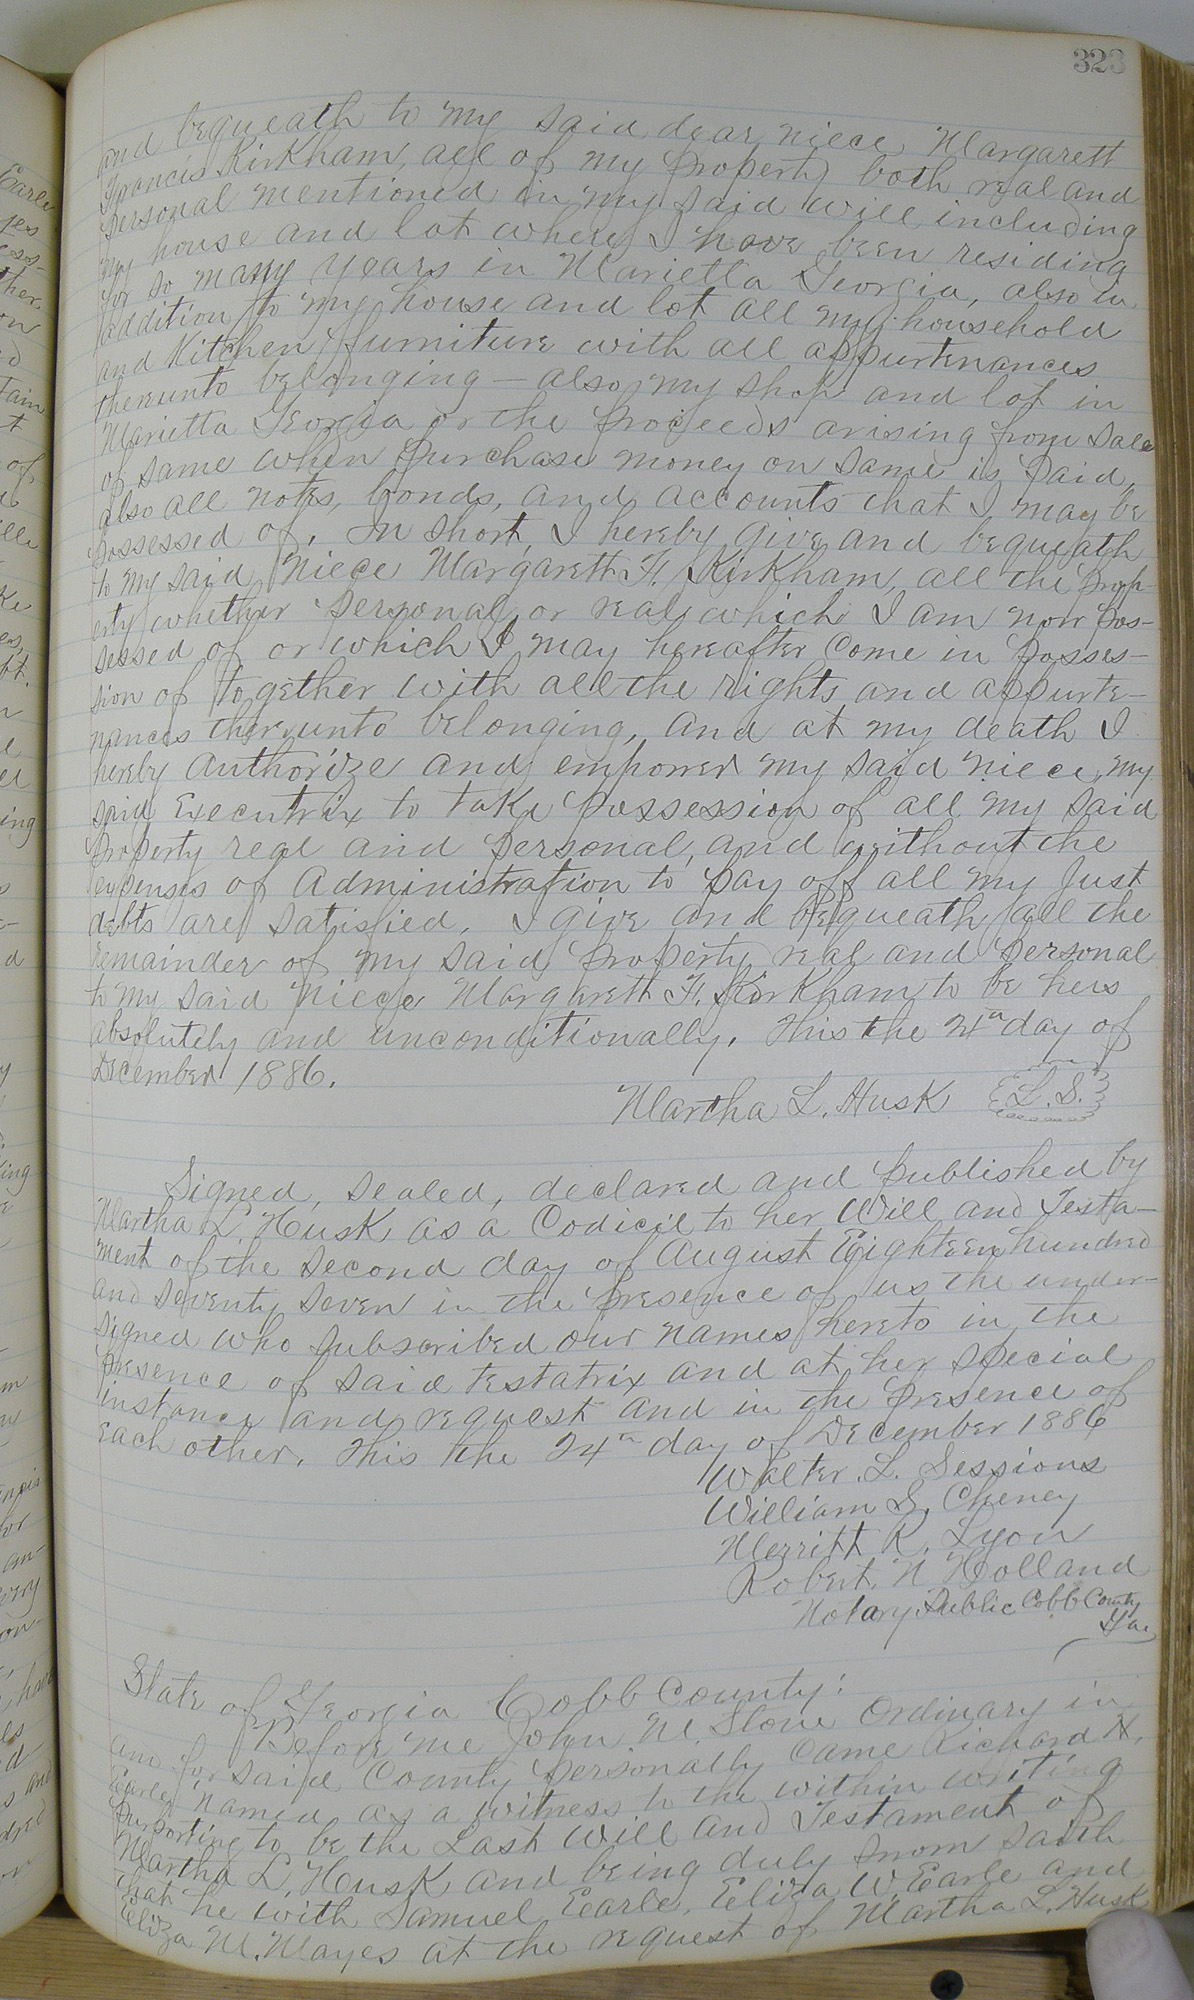 323
and bequeath to my said dear niece Margarett
Francis Kirkham, all of my property both real and
personal mentioned in my said will, including
my house and lot where I have been residing
for so many years in Marietta Georgia, also in
addition to my house and lot all my household
and Kitchen furniture with all appurtenances
thereunto belonging — also my shop and lot in
Marietta Georgia or the proceeds arising from sale
of same when purchase money on same is paid,
also all notes, bonds, and accounts that I may be
possessed of. In short, I hereby give and bequeath
to my said Niece Margarett F. Kirkham, all the prop-
erty whether personal or real which I am now pos-
sessed of or which I may hereafter come in posses-
sion of together with all the rights and appurte-
nances thereunto belonging, and at my death I
hereby authorize and empower my said niece, my
said Executrix to take possession of all my said
property real and personal, and without the
expenses of Administration to pay off all my just
debts are satisfied. I give and bequeath all the
remainder of my said property real and personal
to my said Niece Margarett F. Kirkham to be hers
absolutely and unconditionally. This the 24th day of
December 1886.
Martha L. Husk L. S.
Signed, sealed, declared and published by
Martha L. Husk as a Codicil to her Will and Testa-
ment of the second day of August Eighteen hundred
and seventy seven in the presence of us the under-
signed who subscribed our names hereto in the
presence of said testatrix and at her special
instance and request and in the presence of
each other. This the 24th day of December 1886
Walter. L. Sessions
William S. Cheney
Merritt R. Lyon
Robert. N Holland
Notary Public Cobb County
Ga
State of Georgia Cobb County:
Before me John M. Stone Ordinary in
and for said County personally came Richard H.
Earle named as a witness to the within writing
purporting to be the Last Will and Testament of
Martha L. Husk and being duly sworn saith
that he with Samuel Earle, Eliza W. Earle and
Eliza M. Mayes at the request of Martha L. Husk